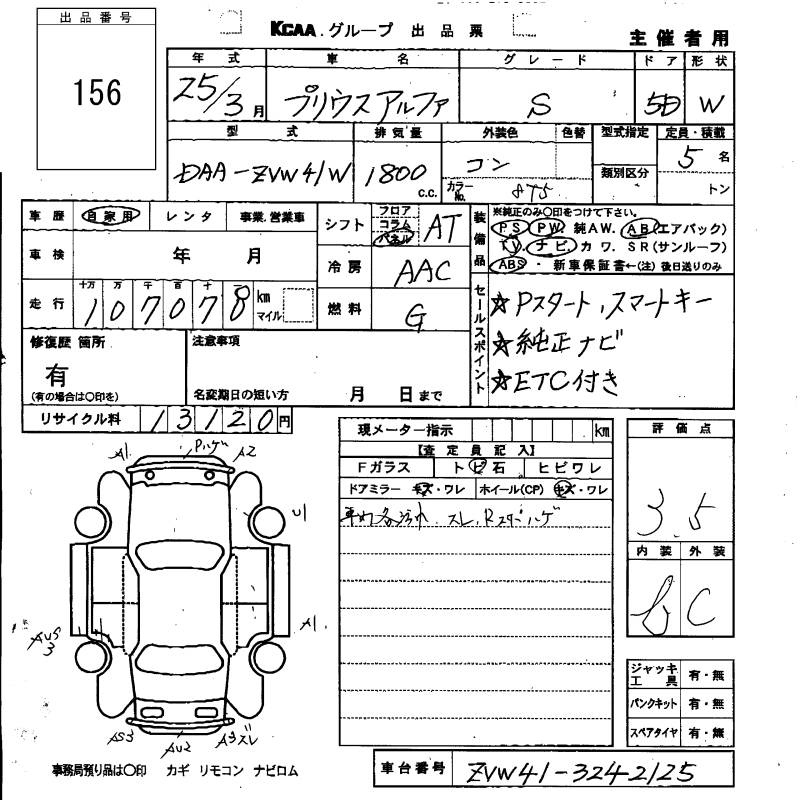 出品番号
156
KCAA.グループ 出品票
主催者用
年式 車名 グレード ドア 形状
25/3月 プリウスアルファ S 5D W
型式 排気量 外装色 色替 型式指定 定員・積載
DAA-ZVW41W 1800 c.c. コン 5名
カラーNo. 8T5 類別区分 トン
車歴 自家用 レンタ 事業.営業車
シフト フロア コラム パネル AT
装備品 ※純正のみ〇印をつけて下さい。
PS PW. 純AW. AB(エアバック)
TV. ナビ. カワ. SR(サンルーフ)
ABS ・ 新車保証書←(注)後日送りのみ
車検 年 月
冷房 AAC
走行 十万 万 千 百 十 一
107078 km マイル
燃料 G
セールスポイント
☆Pスタート、スマートキー
☆純正ナビ
☆ETC付き
修復歴 箇所
有
(有の場合は〇印を)
注意事項
名変期日の短い方 月 日まで
リサイクル料 13120円
現メーター指示 km
【査定員記入】
Fガラス トビ石 ヒビワレ
ドアミラー キズ・ワレ ホイール(CP) キズ・ワレ
車内各汚れ スレ、Rステハゲ
評価点
3.5
内装 外装
b C
A1 Pハゲ A2
U1
A1.
AUS
3
AS3 AU2 A3スレ
ジャッキ工具 有・無
パンクキット 有・無
スペアタイヤ 有・無
事務局預り品は〇印 カギ リモコン ナビロム
車台番号 ZVW41-3242125